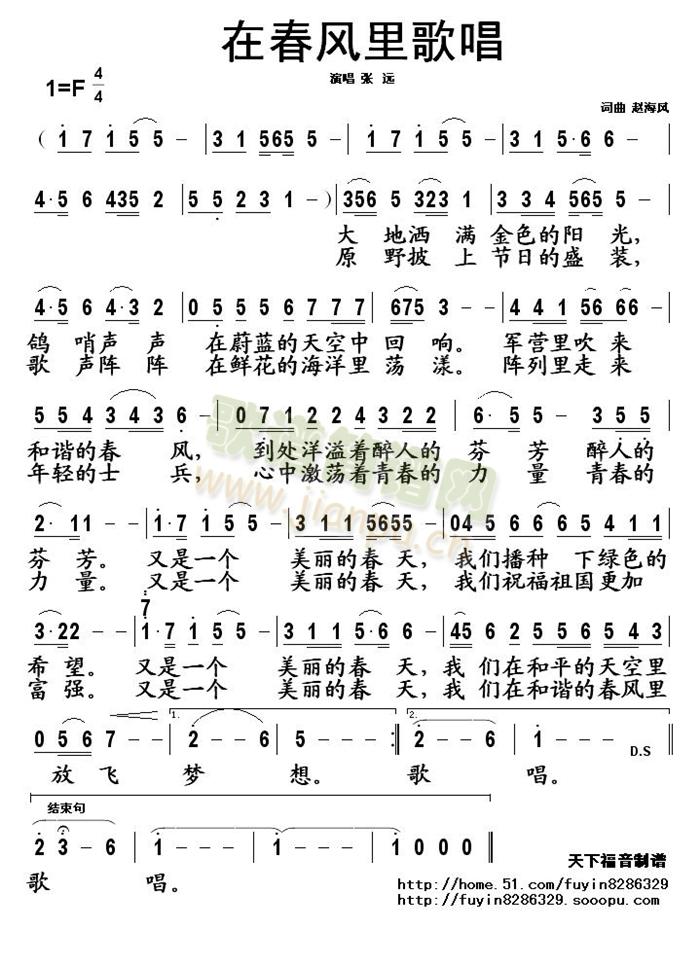 在春风里歌唱
演唱 张 远
1=F 4/4
词曲 赵海风
( 1 7 1 5 5 - | 3 1 565 5 - | 1 7 1 5 5 - | 3 1 5·6 6 - |
4·5 6 435 2 | 5 5 2 3 1 - ) | 356 5 323 1 | 3 3 4 565 5 - |
大 地洒 满 金色的阳 光,
原 野披 上 节日的盛 装,
4·5 6 4·3 2 | 0 5 5 5 6 7 7 7 | 675 3 - - | 4 4 1 56 66 - |
鸽 哨声 声 在蔚蓝的天空中 回 响。 军营里吹 来
歌 声阵 阵 在鲜花的海洋里 荡 漾。 阵列里走 来
5 5 4 3 4 3 6 - | 0 7 1 2 2 4 3 2 2 | 6· 5 5 - | 3 5 5
和谐的春 风, 到处洋溢着醉人的 芬 芳 醉人的
年轻的士 兵, 心中激荡着青春的 力 量 青春的
2· 11 - - | 1·7 1 5 5 - | 3 1 1 5655 | 04 5 6 6 6 5 4 1 1 |
芬 芳。 又是一个 美丽的春 天, 我们播种 下绿色的
力 量。 又是一个 美丽的春 天, 我们祝福祖国更加
7
3·22 - - | 1·7 1 5 5 - | 3 1 1 5·6 6 - | 45 6 2 5 5 6 5 4 3 |
希 望。 又是一个 美丽的春 天, 我 们在和平的天空里
富 强。 又是一个 美丽的春 天, 我 们在和谐的春风里
1.
2.
0 5 6 7 - - | 2 - - 6 | 5 - - - :| 2 - - 6 | 1 - - -
D.S
放 飞 梦 想。 歌 唱。
结束句
2 3 - 6 | 1 - - - | 1 - - - | 1 0 0 0 ‖
歌 唱。
天下福音制谱
http://home.51.com/fuyin8286329
http://fuyin8286329.sooopu.com
歌谱简谱网
www.jianpu.cn